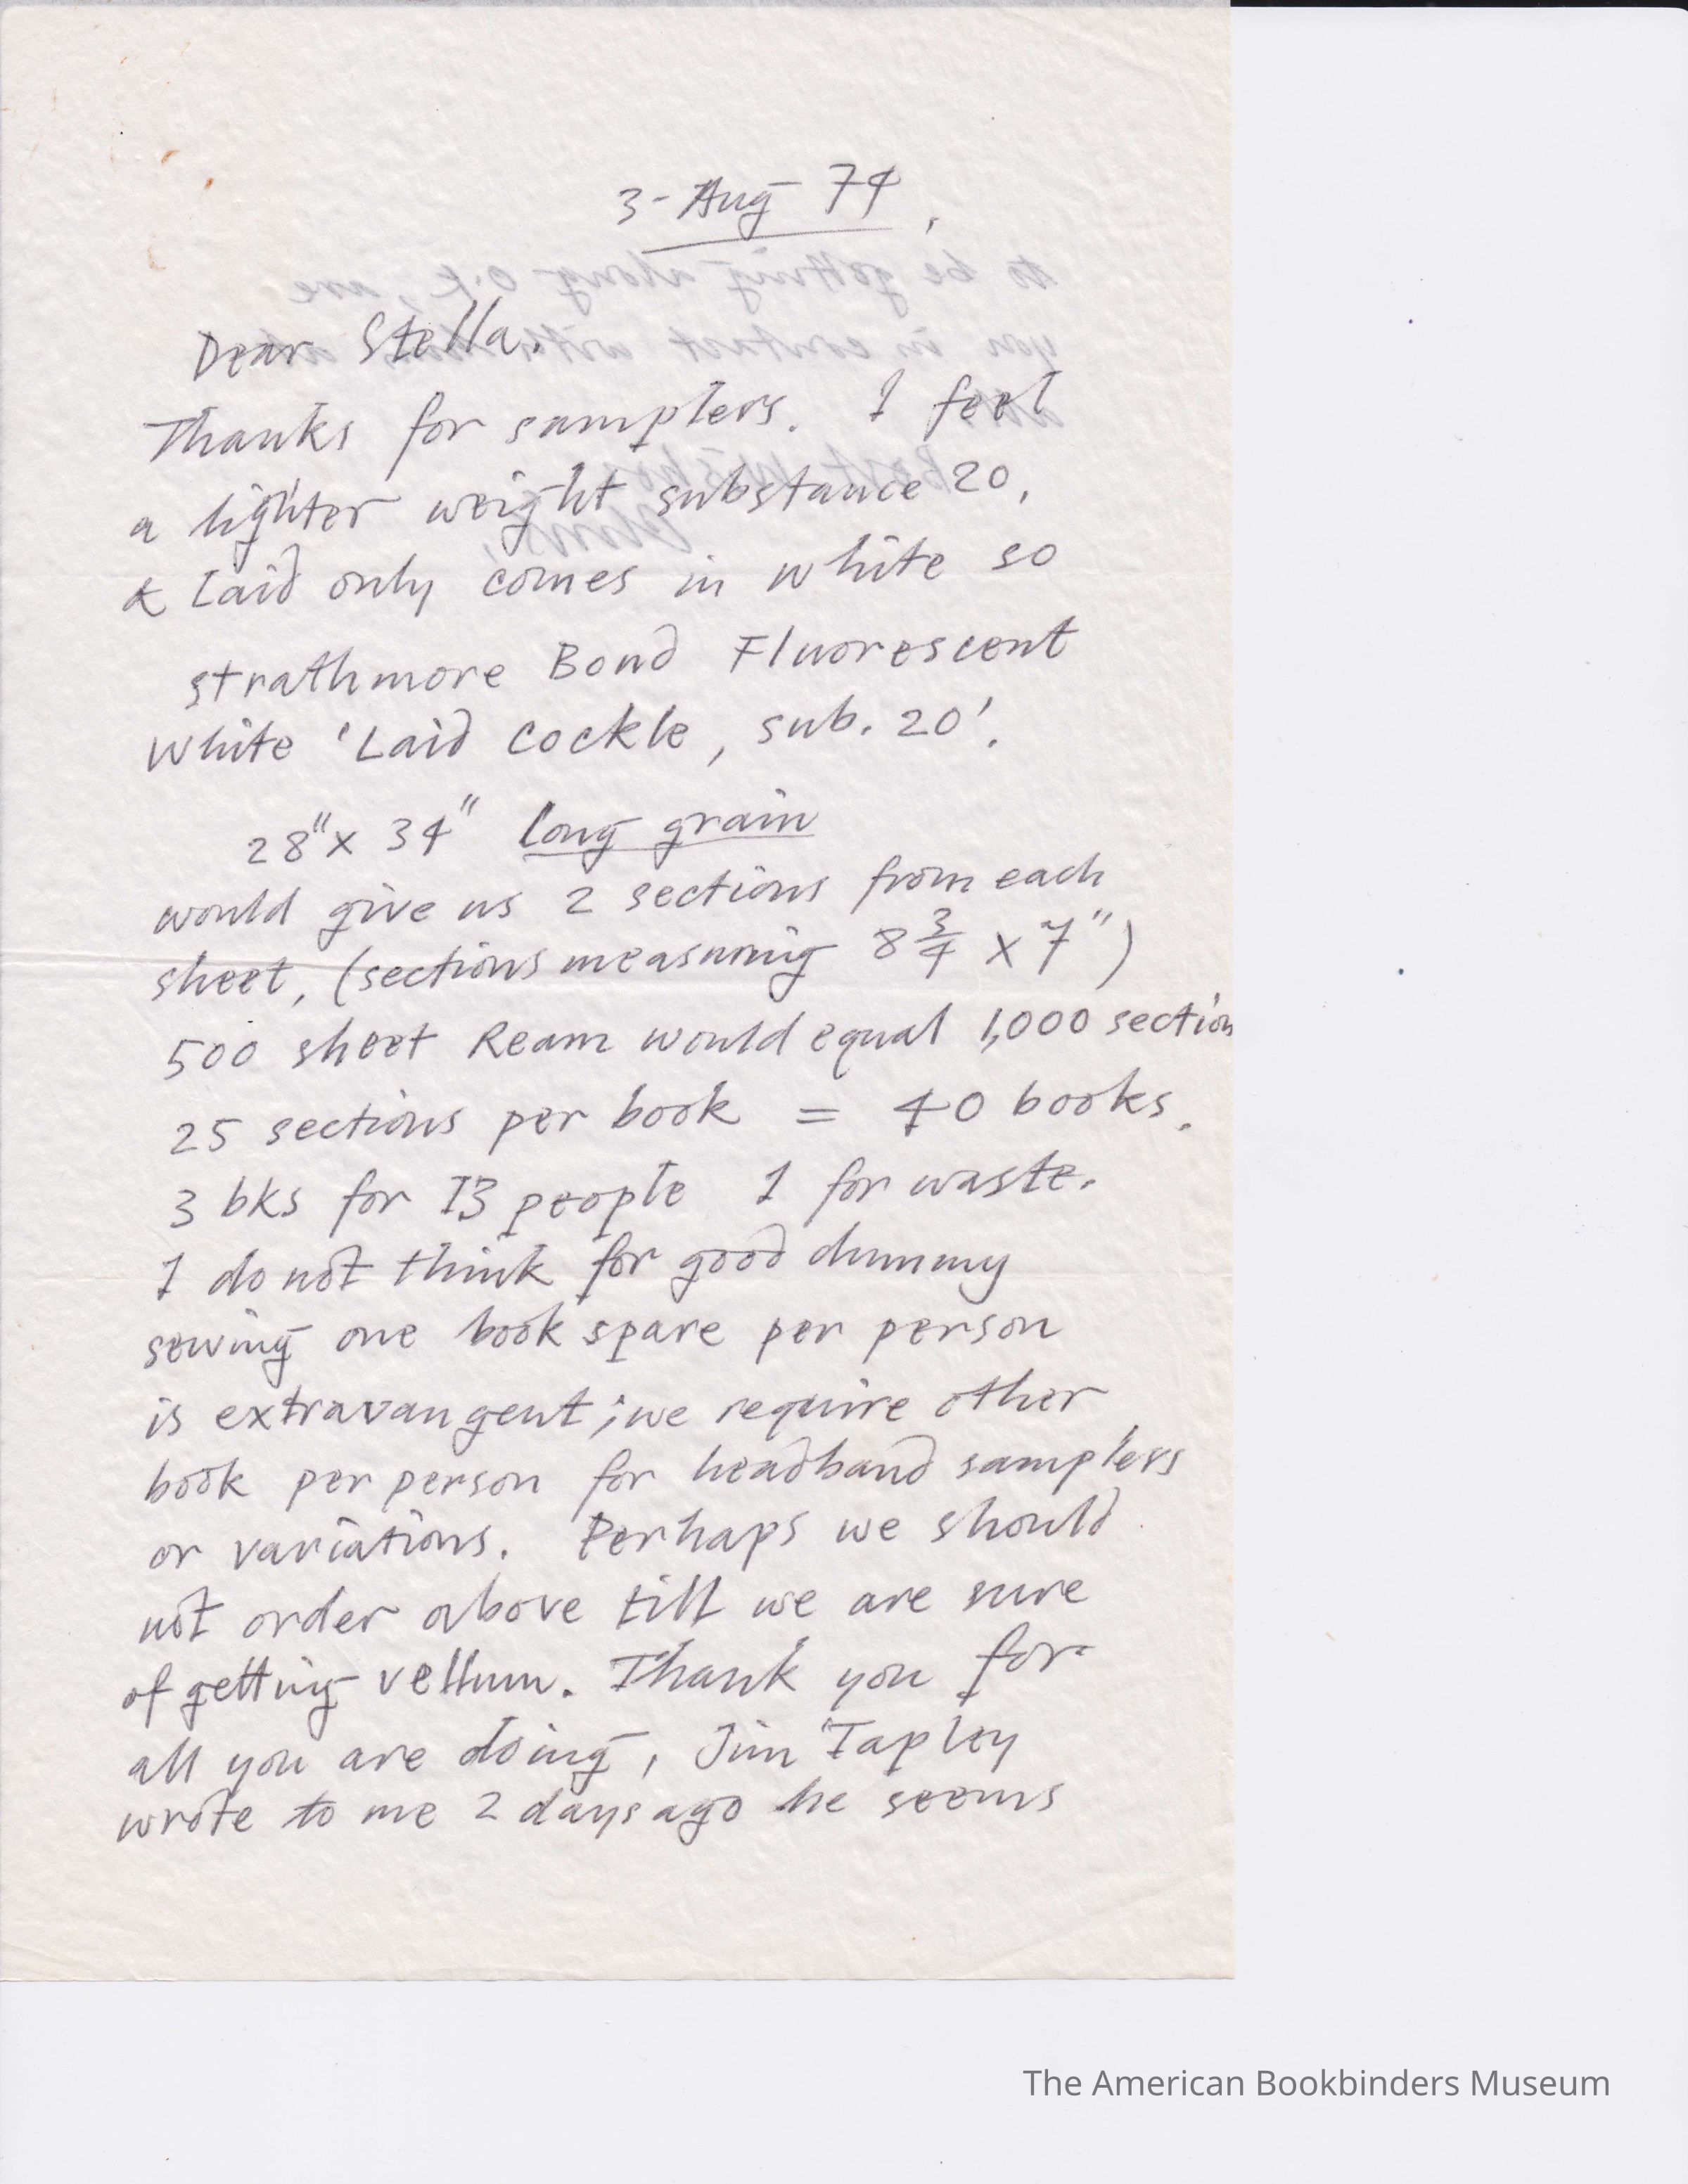 3-Aug 74,
Dear Stella.
Thanks for samplers. I feel
a lighter weight substance 20,
& Laid only comes in white so
Strathmore Bond Fluorescent
White 'Laid Cockle, sub. 20'.
28" x 34" Long grain
would give us 2 sections from each
sheet, (sections measuring 8 3/4 x 7")
500 sheet Ream would equal 1,000 section
25 sections per book = 40 books.
3 bks for 13 people 1 for waste.
I do not think for good dummy
sewing one book spare per person
is extravangent; we require other
book per person for headband samplers
or variations. Perhaps we should
not order above till we are sure
of getting vellum. Thank you for
all you are doing, Jim Tapley
wrote to me 2 days ago he seems
The American Bookbinders Museum